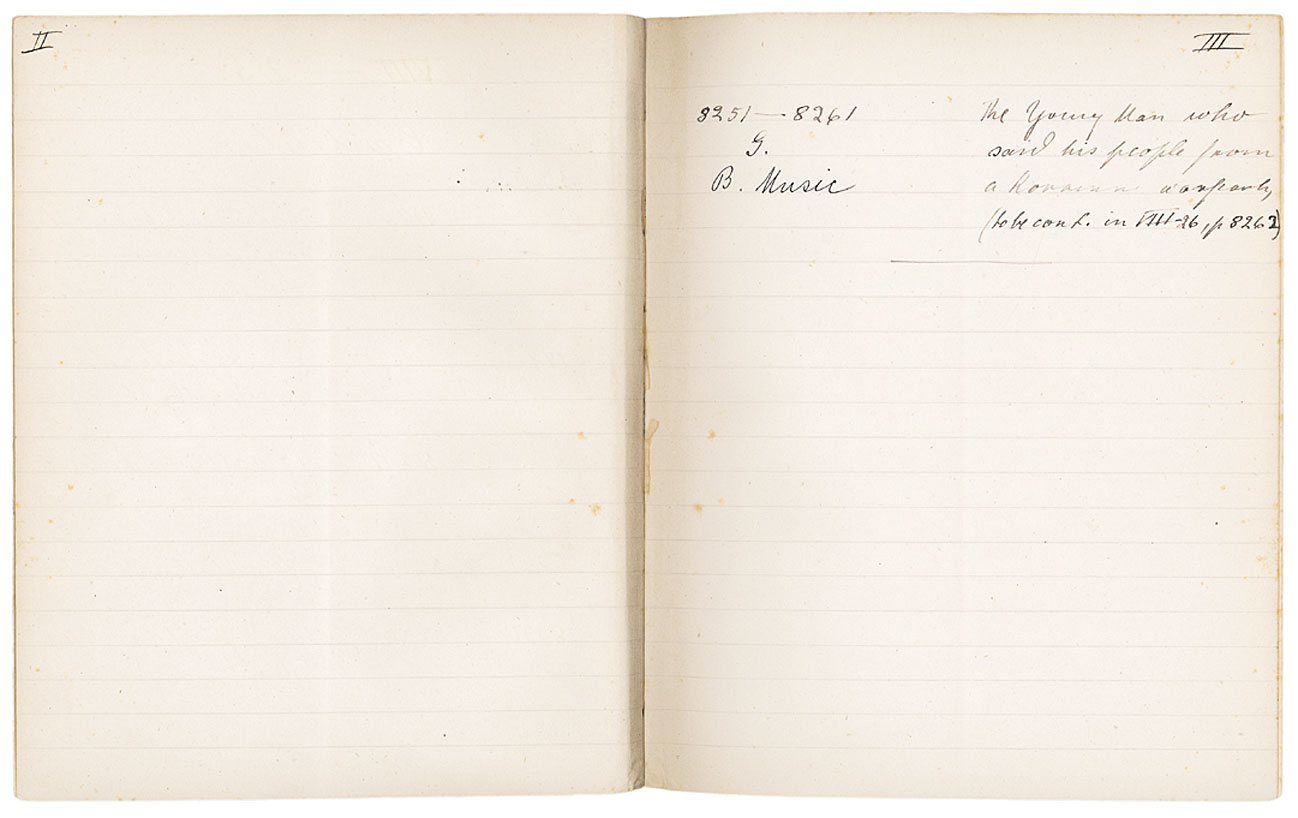 II
III
8251 — 8261
G.
B. Music
The Young Man who
saved his people from
a Koranna warparty,
(to be cont. in VIII-26, p 8262)